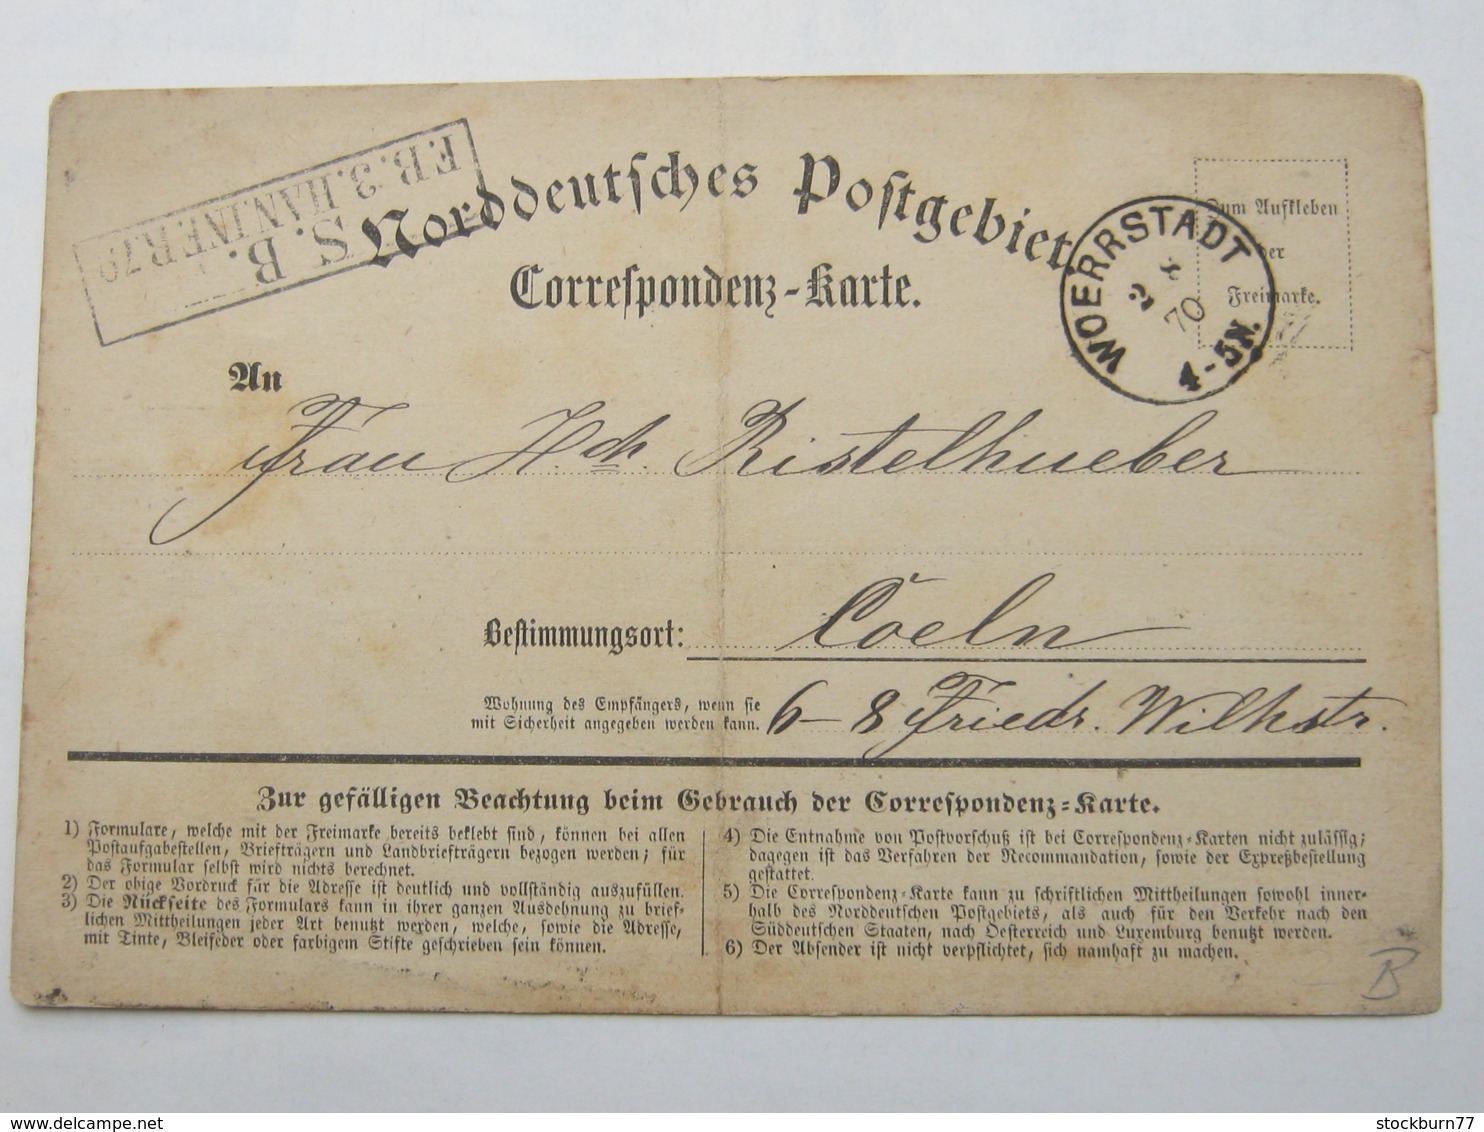 Norddeutsches Postgebiet.
Correspondenz-Karte.
Zum Aufkleben
der
Freimarke.
WOERRSTADT
2
70
4-5N.
S. B.
An
Frau Hch. Ristelhueber
Bestimmungsort: Coeln
Wohnung des Empfängers, wenn sie
mit Sicherheit angegeben werden kann.
6-8 Friedr. Wilhstr.
Zur gefälligen Beachtung beim Gebrauch der Correspondenz-Karte.
1) Formulare, welche mit der Freimarke bereits beklebt sind, können bei allen
Postaufgabestellen, Briefträgern und Landbriefträgern bezogen werden; für
das Formular selbst wird nichts berechnet.
2) Der obige Vordruck für die Adresse ist deutlich und vollständig auszufüllen.
3) Die Rückseite des Formulars kann in ihrer ganzen Ausdehnung zu brief-
lichen Mittheilungen jeder Art benutzt werden, welche, sowie die Adresse,
mit Tinte, Bleifeder oder farbigem Stifte geschrieben sein können.
4) Die Entnahme von Postvorschuß ist bei Correspondenz-Karten nicht zulässig;
dagegen ist das Verfahren der Recommandation, sowie der Expreßbestellung
gestattet.
5) Die Correspondenz-Karte kann zu schriftlichen Mittheilungen sowohl inner-
halb des Norddeutschen Postgebiets, als auch für den Verkehr nach den
Süddeutschen Staaten, nach Oesterreich und Luxemburg benutzt werden.
6) Der Absender ist nicht verpflichtet, sich namhaft zu machen.
B
stockburn77